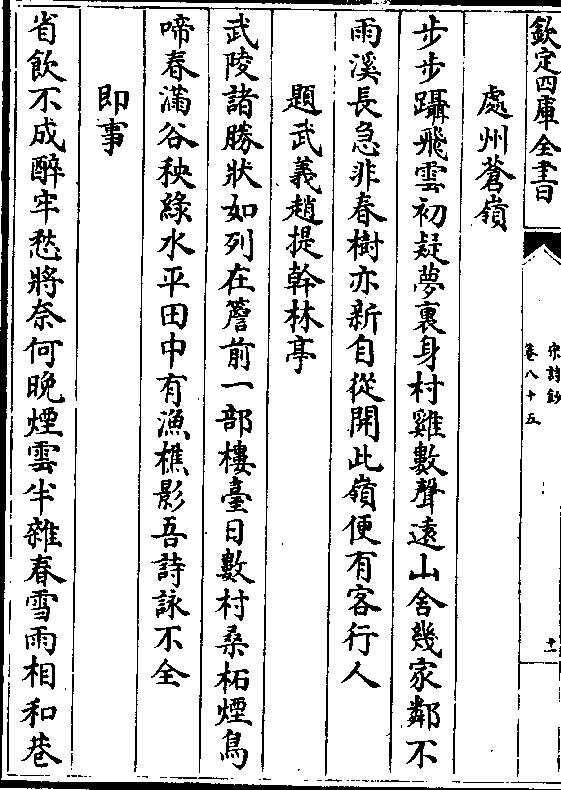 欽定四庫全書
宋詩鈔
卷八十五
十一
處州蒼嶺
步步躡飛雲初疑夢裏身村雞數聲遠山舍幾家鄰不
雨溪長急非春樹亦新自從開此嶺便有客行人
題武義趙提幹林亭
武陵諸勝狀如列在簷前一部樓臺日數村桑柘煙鳥
啼春滿谷秧綠水平田中有漁樵影吾詩詠不全
即事
省飲不成醉牢愁將奈何晚煙雲半雜春雪雨相和巷